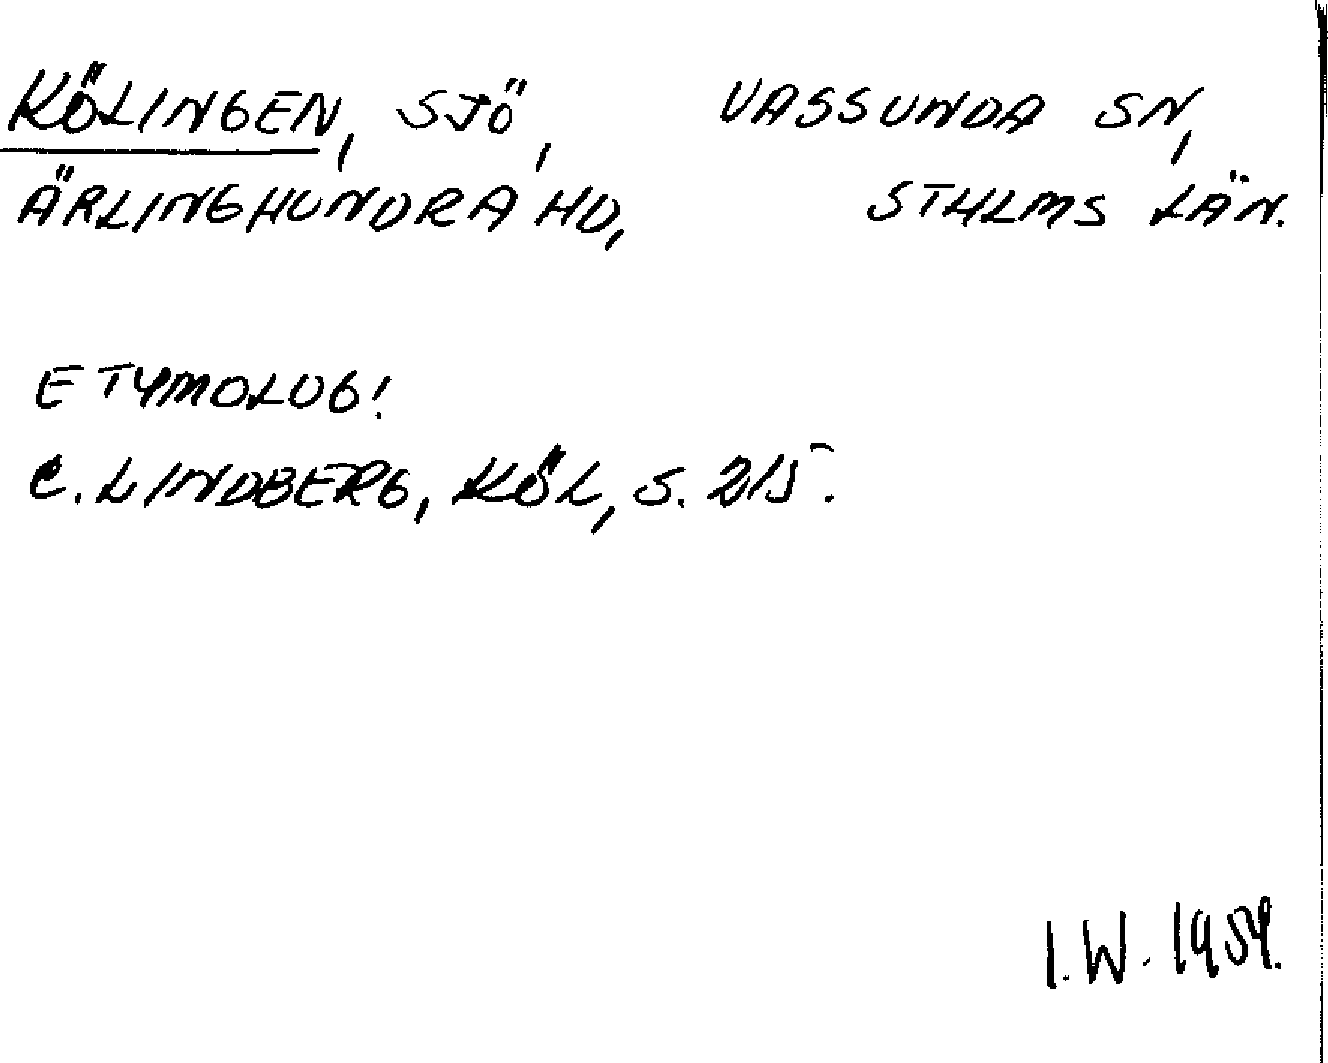 KÖLINGEN, SJÖ, VASSUNDA SN,
ÄRLINGHUNDRA HD, STHLMS LÄN.
ETYMOLOG!
C. LINDBERG, KÖL, S. 215.
I. W. 1959.